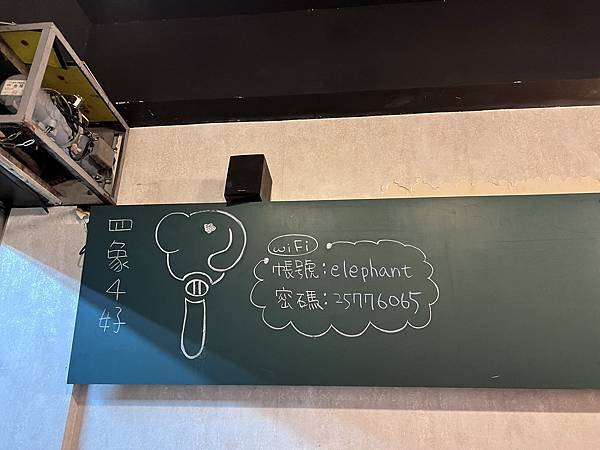 四象4好
WiFi
帳號:elephant
密碼:25776065